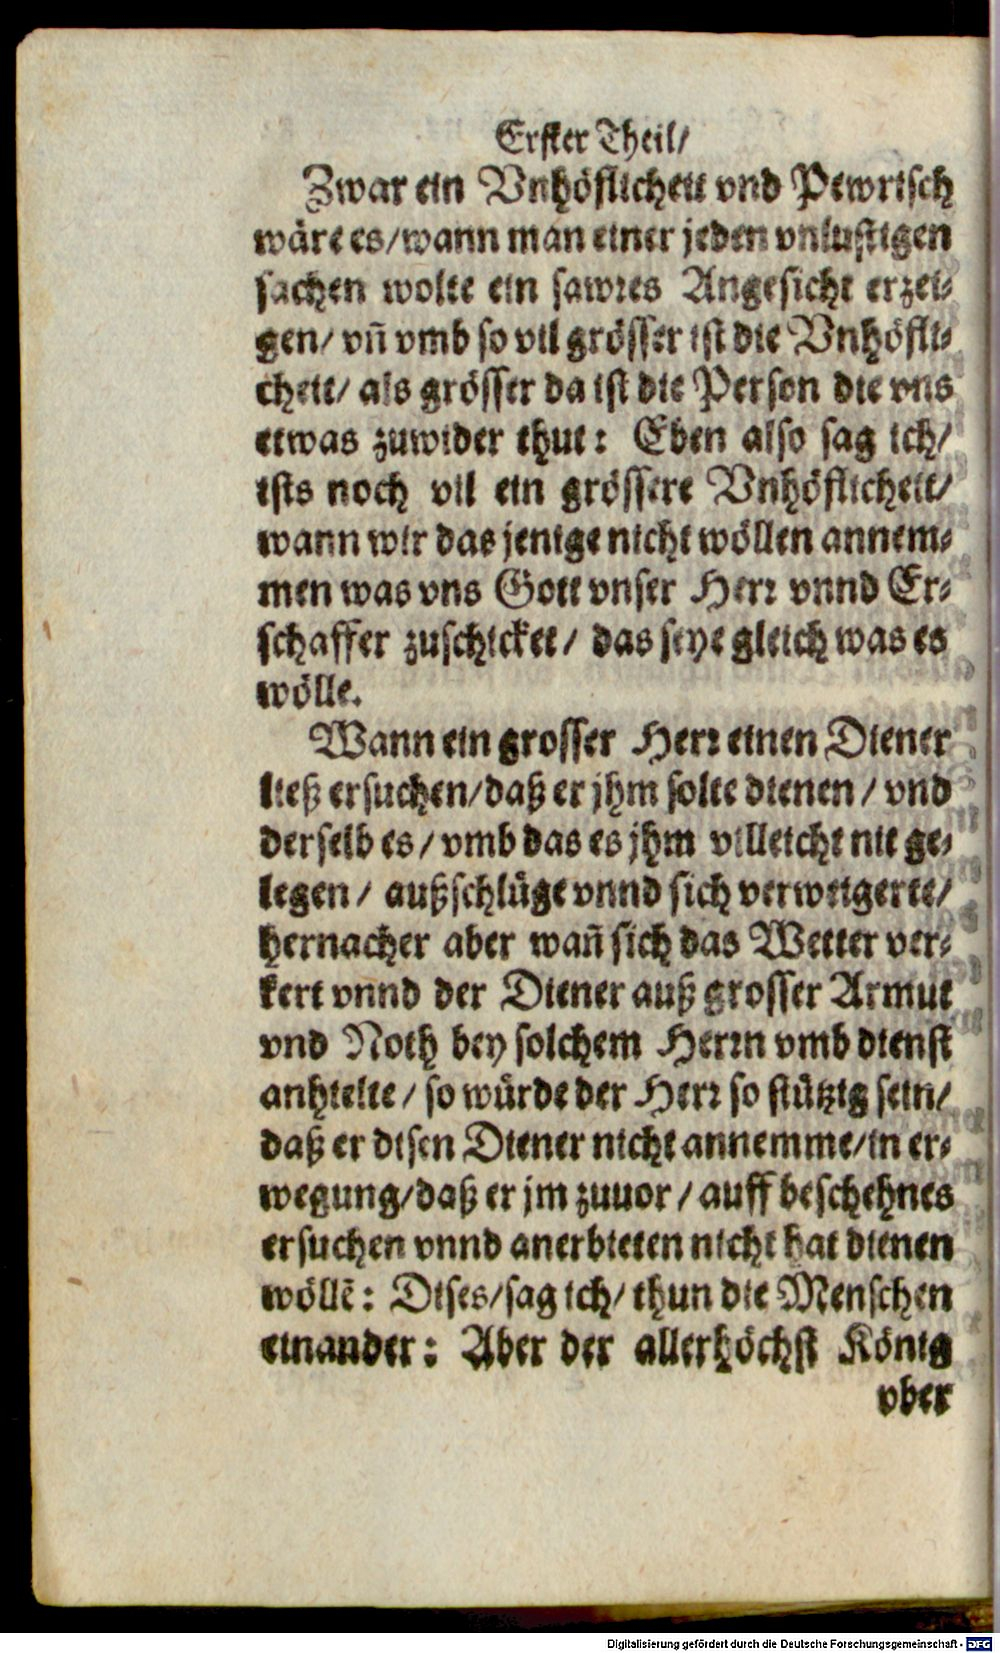 Erster Theil/
Zwar ein Vnhöflicheit vnd Pewrisch
wäre es/wann man einer jeden vnlustigen
sachen wolte ein sawres Angesicht erzei-
gen/ vñ vmb so vil grösser ist die Vnhöfli-
cheit/ als grösser da ist die Person die vns
etwas zuwider thut: Eben also sag ich/
ists noch vil ein grössere Vnhöflicheit/
wann wir das jenige nicht wöllen annem-
men was vns Gott vnser Herr vnnd Er-
schaffer zuschicket/ das seye gleich was es
wölle.
Wann ein grosser Herr einen Diener
ließ ersuchen/daß er jhm solte dienen/ vnd
derselb es/ vmb das es jhm villeicht nit ge-
legen/ außschlüge vnnd sich verweigerte/
hernacher aber wañ sich das Wetter ver-
kert vnnd der Diener auß grosser Armut
vnd Noth bey solchem Herrn vmb dienst
anhielte/ so würde der Herr so stützig sein/
daß er disen Diener nicht annemme/in er-
wegung/daß er jm zuuor/ auff beschehnes
ersuchen vnnd anerbieten nicht hat dienen
wöllē: Dises/sag ich/ thun die Menschen
einander: Aber der allerhöchst König
vber
Digitalisierung gefördert durch die Deutsche Forschungsgemeinschaft - DFG